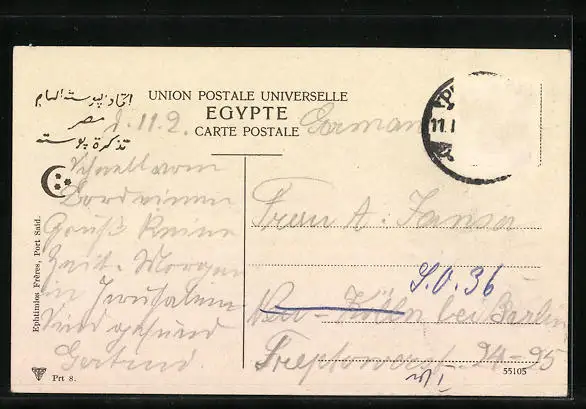 اتحاد پوسته العام
مصر
تذكرة پوسته
UNION POSTALE UNIVERSELLE
EGYPTE
CARTE POSTALE
d. 11.2.
German
11.I
Schnell vom
Bord einen
Gruß. Keine
Zeit. Morgen
in Jerusalem
Sind gesund
Gertrud
Frau A. Jansa
S.O. 36
Neu-Kölln bei Berlin
Treptowerst. 94-95
Ephtimios Frères, Port Said.
Prt 8.
55105